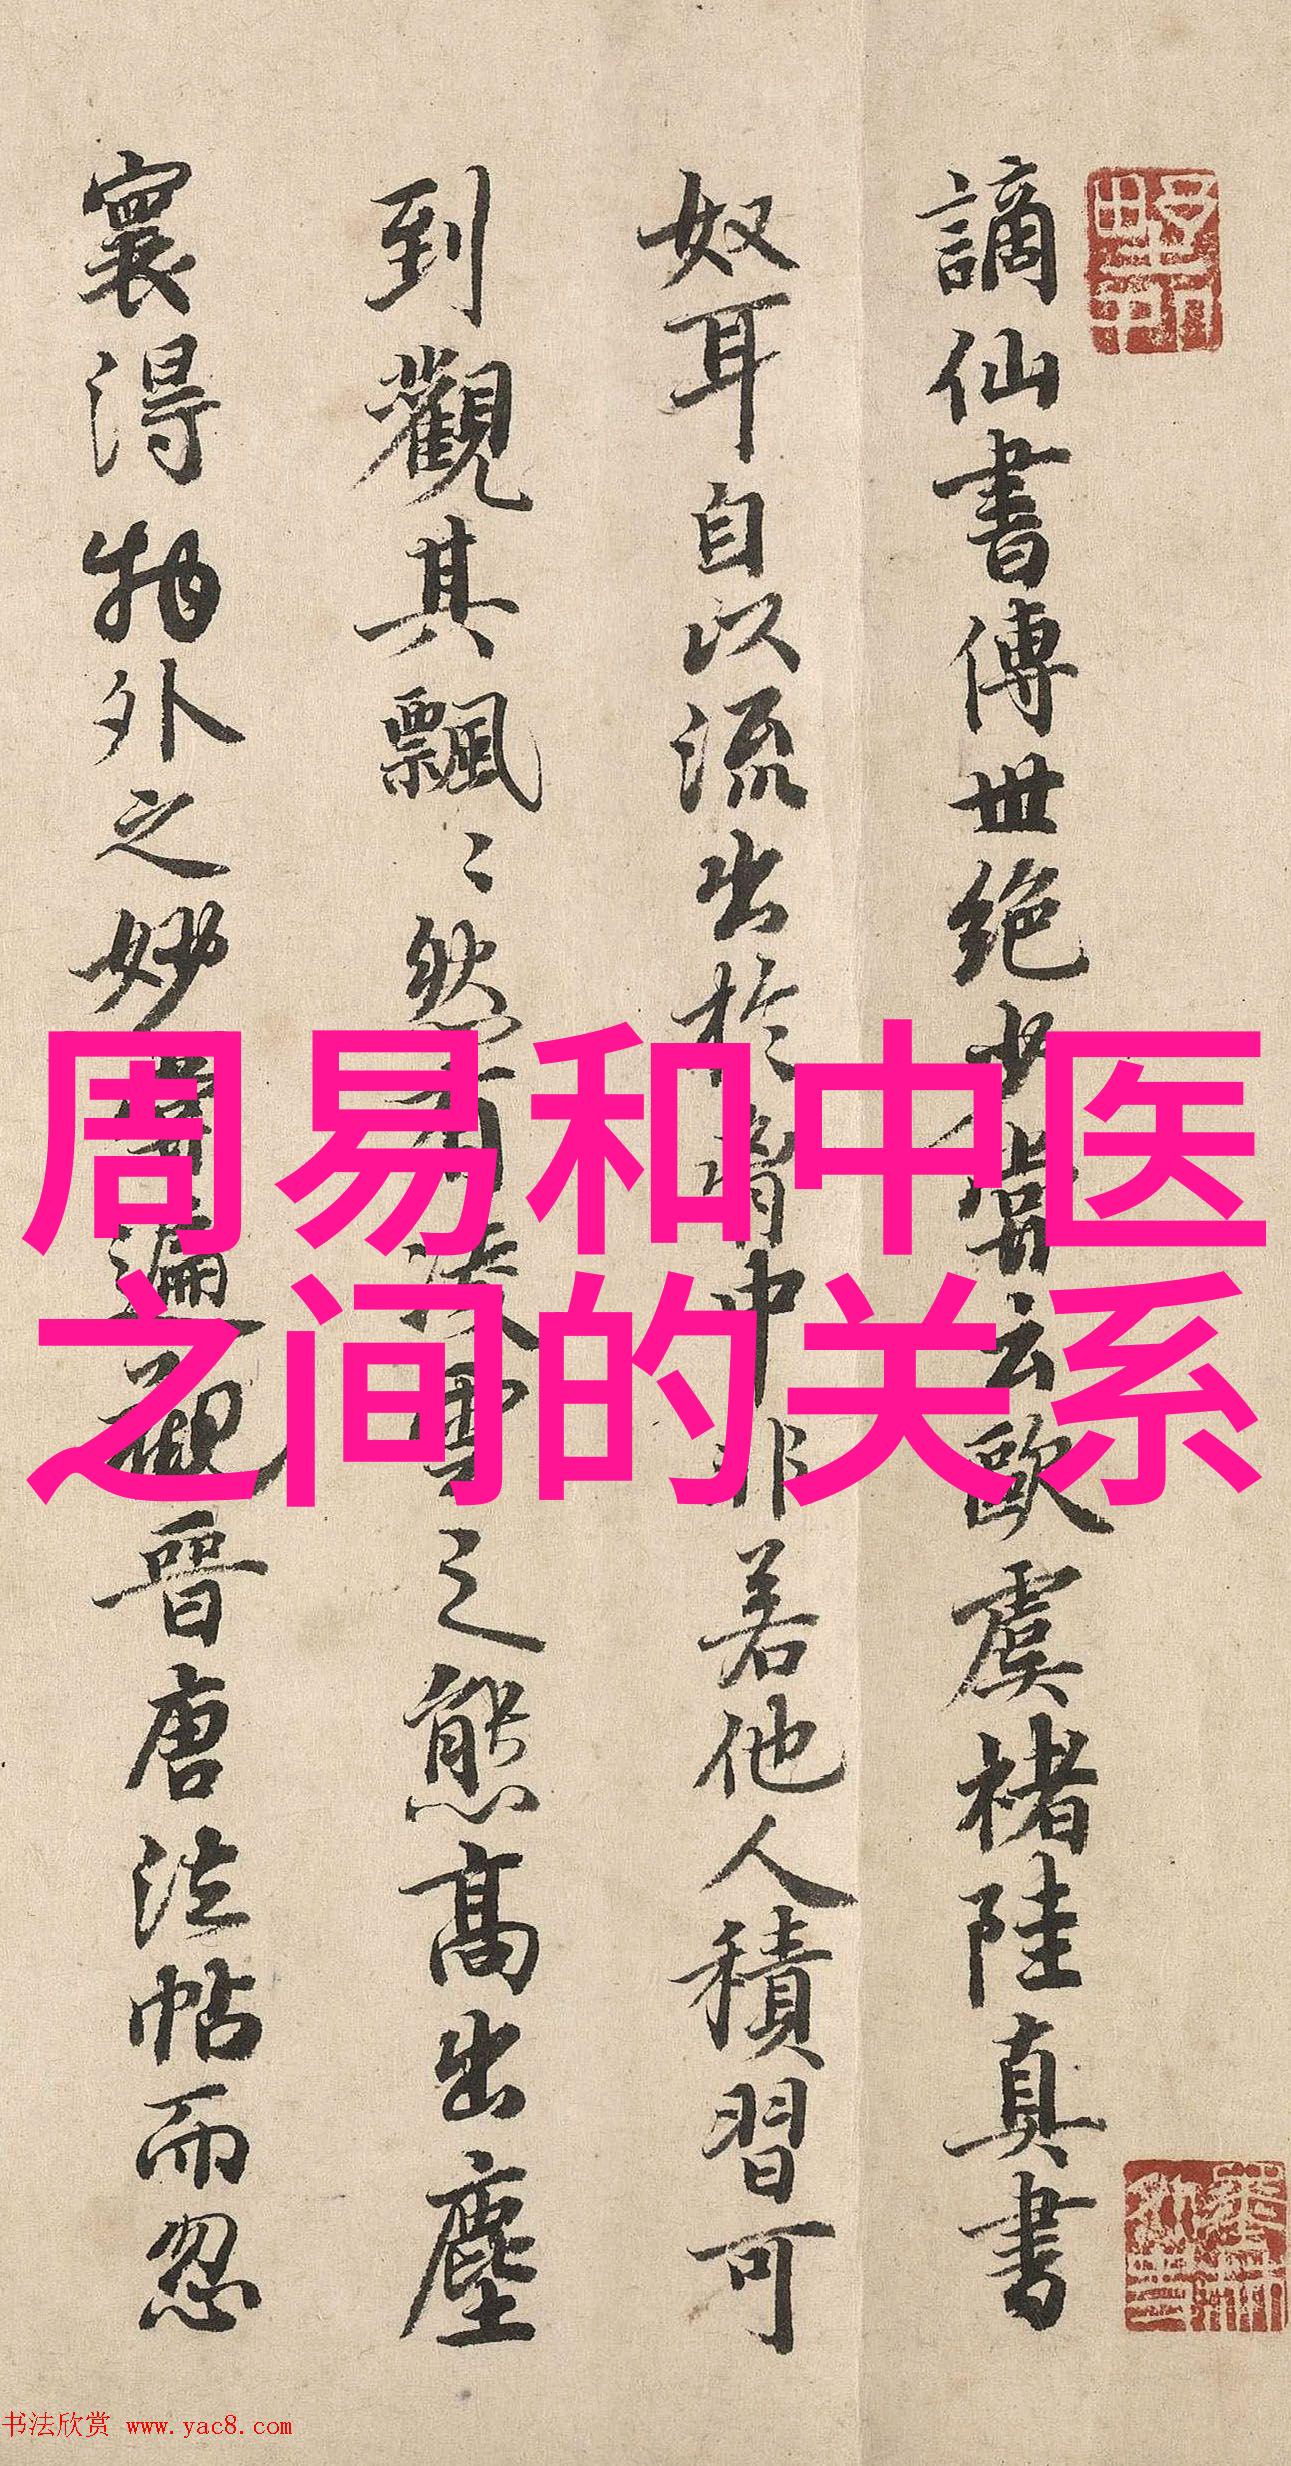 周易和中医
之间的关系
謫仙書傳世絶少嘗云歐虞褚陸真書
奴耳自以流出於胷中非若他人積習可
到觀其飄〻然有凌雲之態高出塵
寰得物外之妙嘗遍觀晉唐法帖而忽
书法欣赏 www.yac8.com